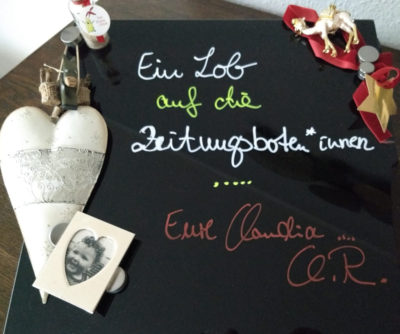 Ein Lob
auf die
Zeitungsboten*innen
.....
Eure Claudia ....
C.R.